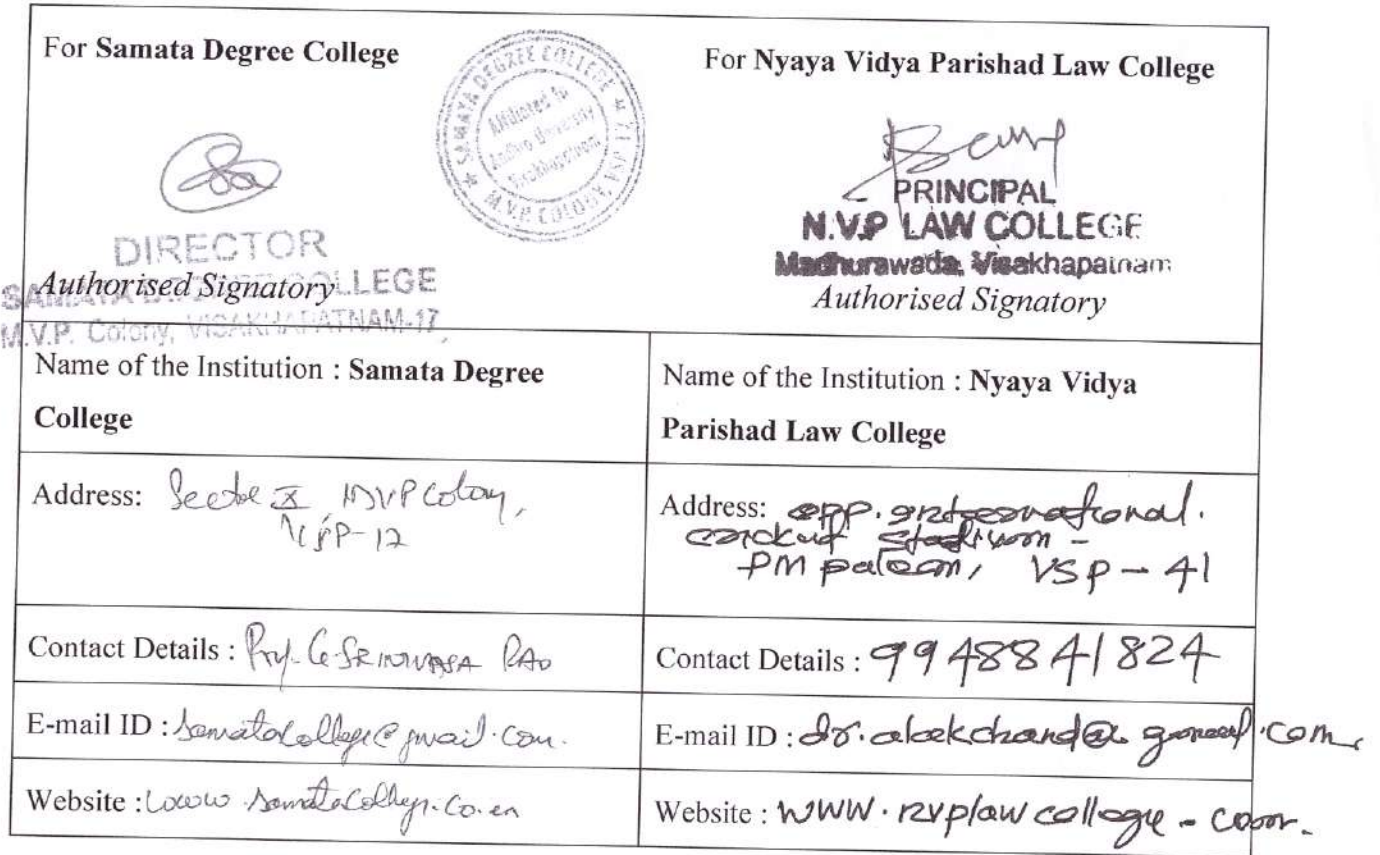 For Samata Degree College
SAMATA DEGREE COLLEGE
M.V.P. COLONY, VISAKHA
Affiliated to
Andhra University
Visakhapatnam
DIRECTOR
Authorised Signatory
SAMATA DEGREE COLLEGE
M.V.P. Colony, VISAKHAPATNAM-17
For Nyaya Vidya Parishad Law College
PRINCIPAL
N.V.P LAW COLLEGE
Madhurawada, Visakhapatnam
Authorised Signatory
Name of the Institution : Samata Degree
College
Name of the Institution : Nyaya Vidya
Parishad Law College
Address: MVP Colony,
VSP-17
Address: opp. international.
cricket stadium -
PM palem, VSP - 41
Contact Details : Prof. G. SRINIVASA RAO
Contact Details : 9948841824
E-mail ID : samatacollege@gmail.com.
E-mail ID : @gmail.com
Website : www.samatacollege.co.in
Website : WWW.nvplawcollege.com.